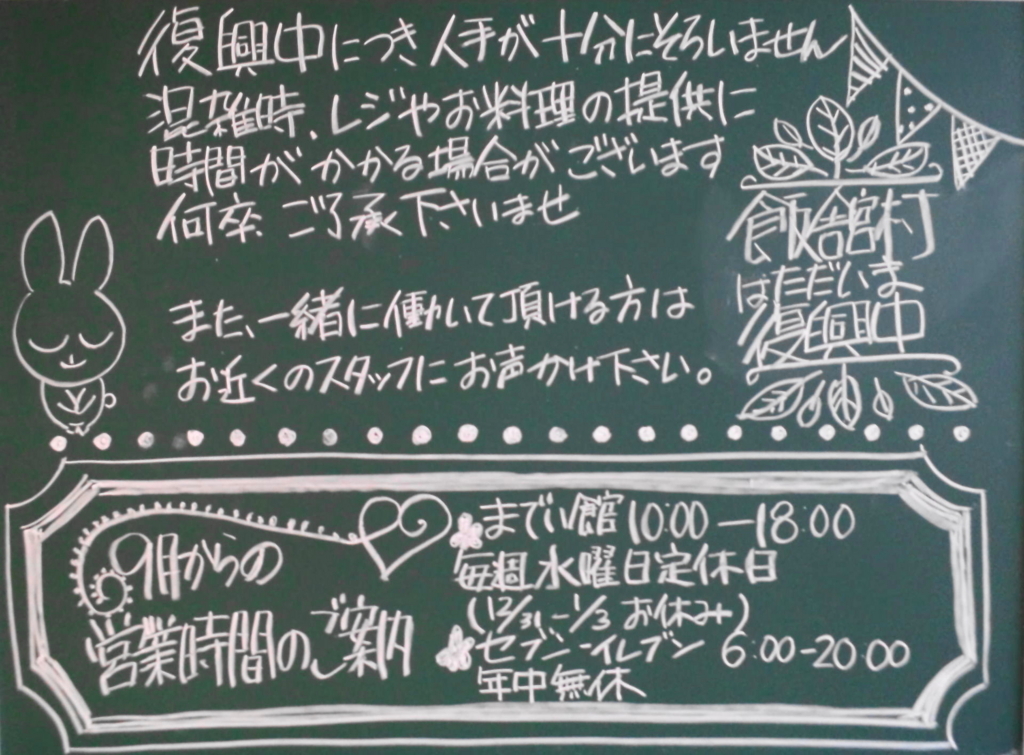 復興中につき人手が十分にそろいません
混雑時、レジやお料理の提供に
時間がかかる場合がございます
何卒ご了承下さいませ
また、一緒に働いて頂ける方は
お近くのスタッフにお声かけ下さい。
飯舘村
はただいま
復興中
9月からの
営業時間のご案内
までい館 10:00-18:00
毎週水曜日定休日
(12/31-1/3 お休み)
セブンーイレブン 6:00-20:00
年中無休